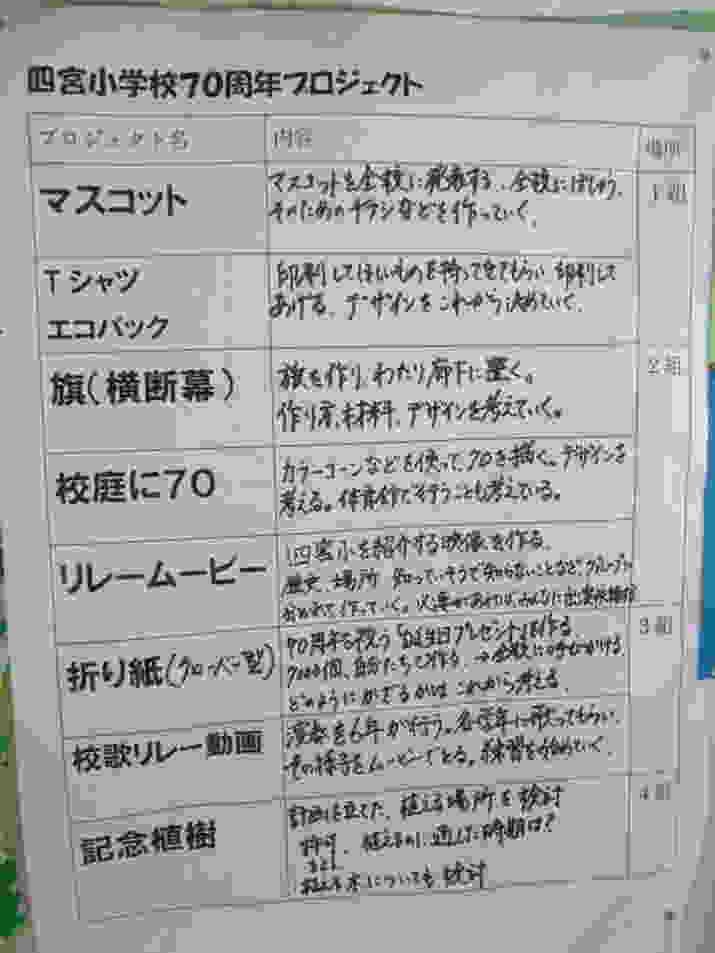 四宮小学校70周年プロジェクト
プロジェクト名 内容 場所
マスコット マスコットを全校に発表する、全校にぼしゅう、 1組
そのためのチラシなどを作っていく。
Tシャツ 印刷してほしいものを持ってきてもらい 印刷して
エコバック あげる、デザインをこれから決めていく。
旗(横断幕) 旗を作り、わたり廊下に置く。 2組
作り方、材料、デザインを考えていく。
校庭に70 カラーコーンなどを使って、70を描く。デザインを
考える。体育館で行うことも考えている。
リレームービー 四宮小を紹介する映像を作る、
歴史、場所 知っていそうで知らないことなど、グループに
わかれて作っていく。必要があれば、みんなに出演依頼
折り紙(クローバー型) 70周年を祝う「誕生日プレゼント」を作る 3組
7000個、自分たちで作る。→全校に呼びかける
どのようにかざるかは これから考える、
校歌リレー動画 演奏を6年が行う。各学年に歌ってもらい、
その様子をムービーでとる。練習を始めていく、
記念植樹 計画を立てた、植える場所を検討 4組
植えるのに適した時期は?
植える木についても 検討